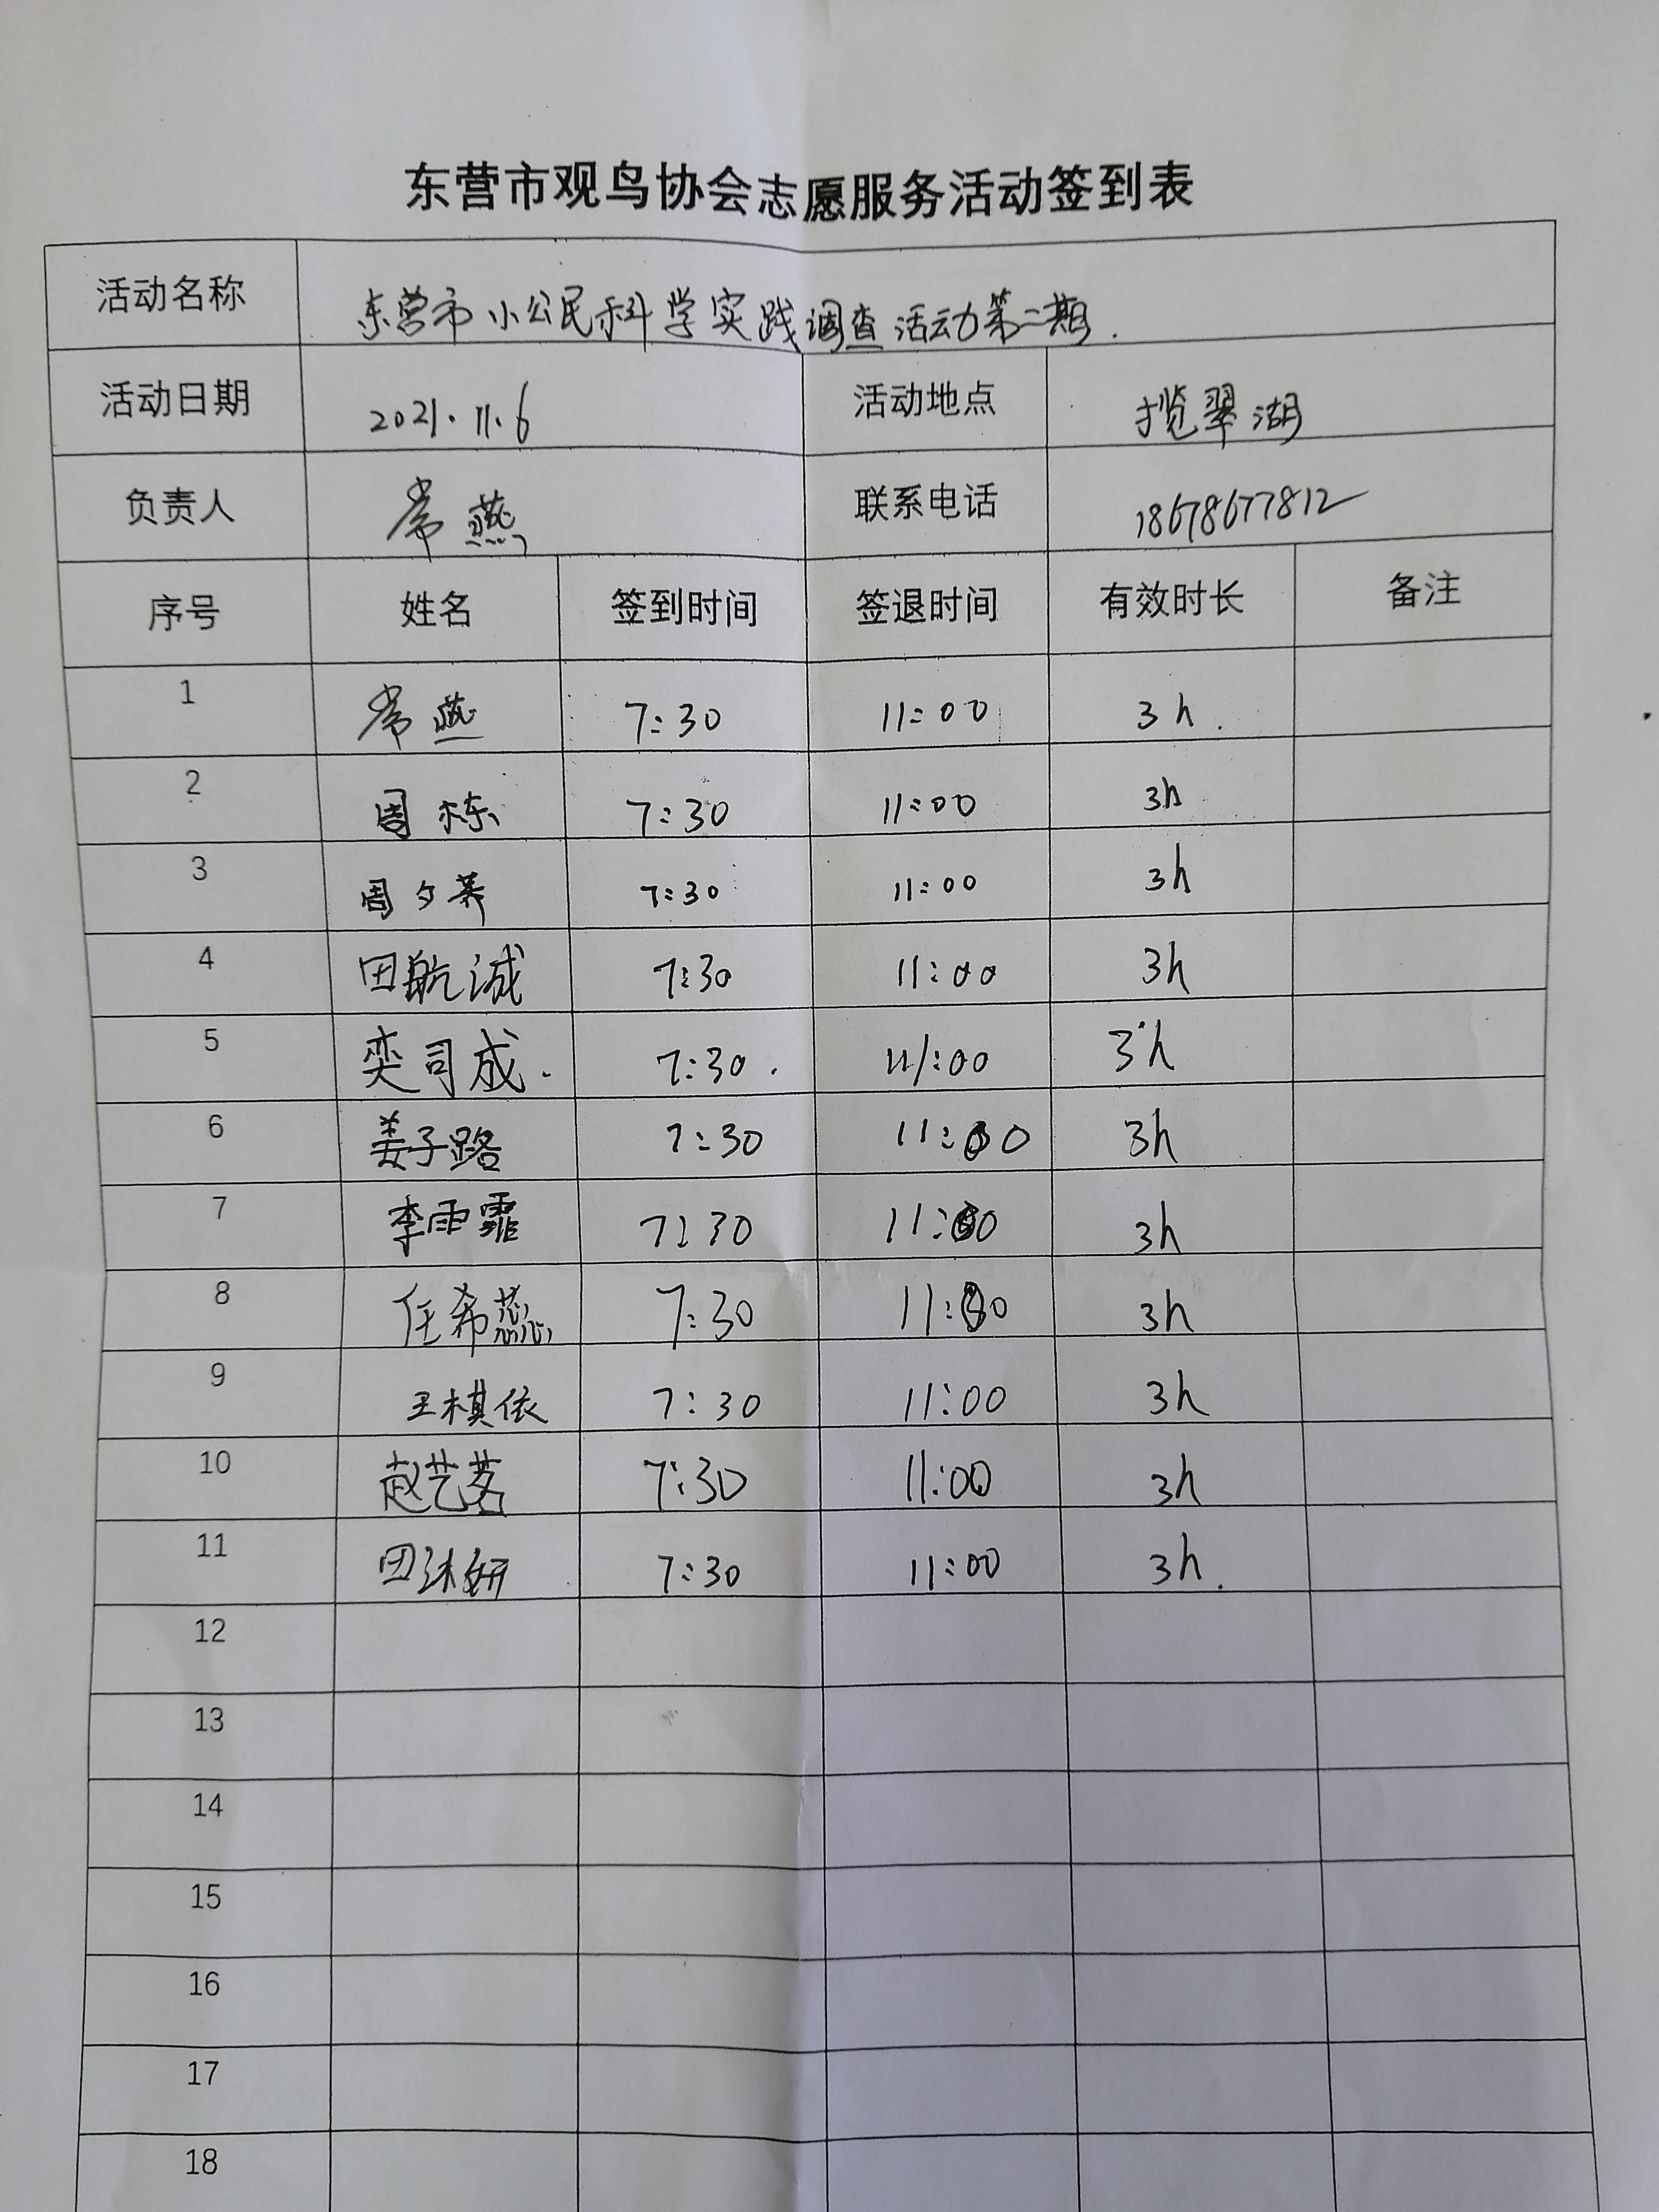 东营市观鸟协会志愿服务活动签到表
活动名称 东营市小公民科学实践调查活动第二期.
活动日期 2021.11.6 活动地点 揽翠湖
负责人 常燕 联系电话 18678677812
序号 姓名 签到时间 签退时间 有效时长 备注
1 常燕 7:30 11:00 3h.
2 周栋 7:30 11:00 3h
3 周夕荞 7:30 11:00 3h
4 田航诚 7:30 11:00 3h
5 奕司成. 7:30. 11:00 3h
6 姜子路 7:30 11:00 3h
7 李雨霏 7:30 11:00 3h
8 任希蕊 7:30 11:00 3h
9 王棋依 7:30 11:00 3h
10 赵艺茗 7:30 11:00 3h
11 田沐妍 7:30 11:00 3h.
12
13
14
15
16
17
18